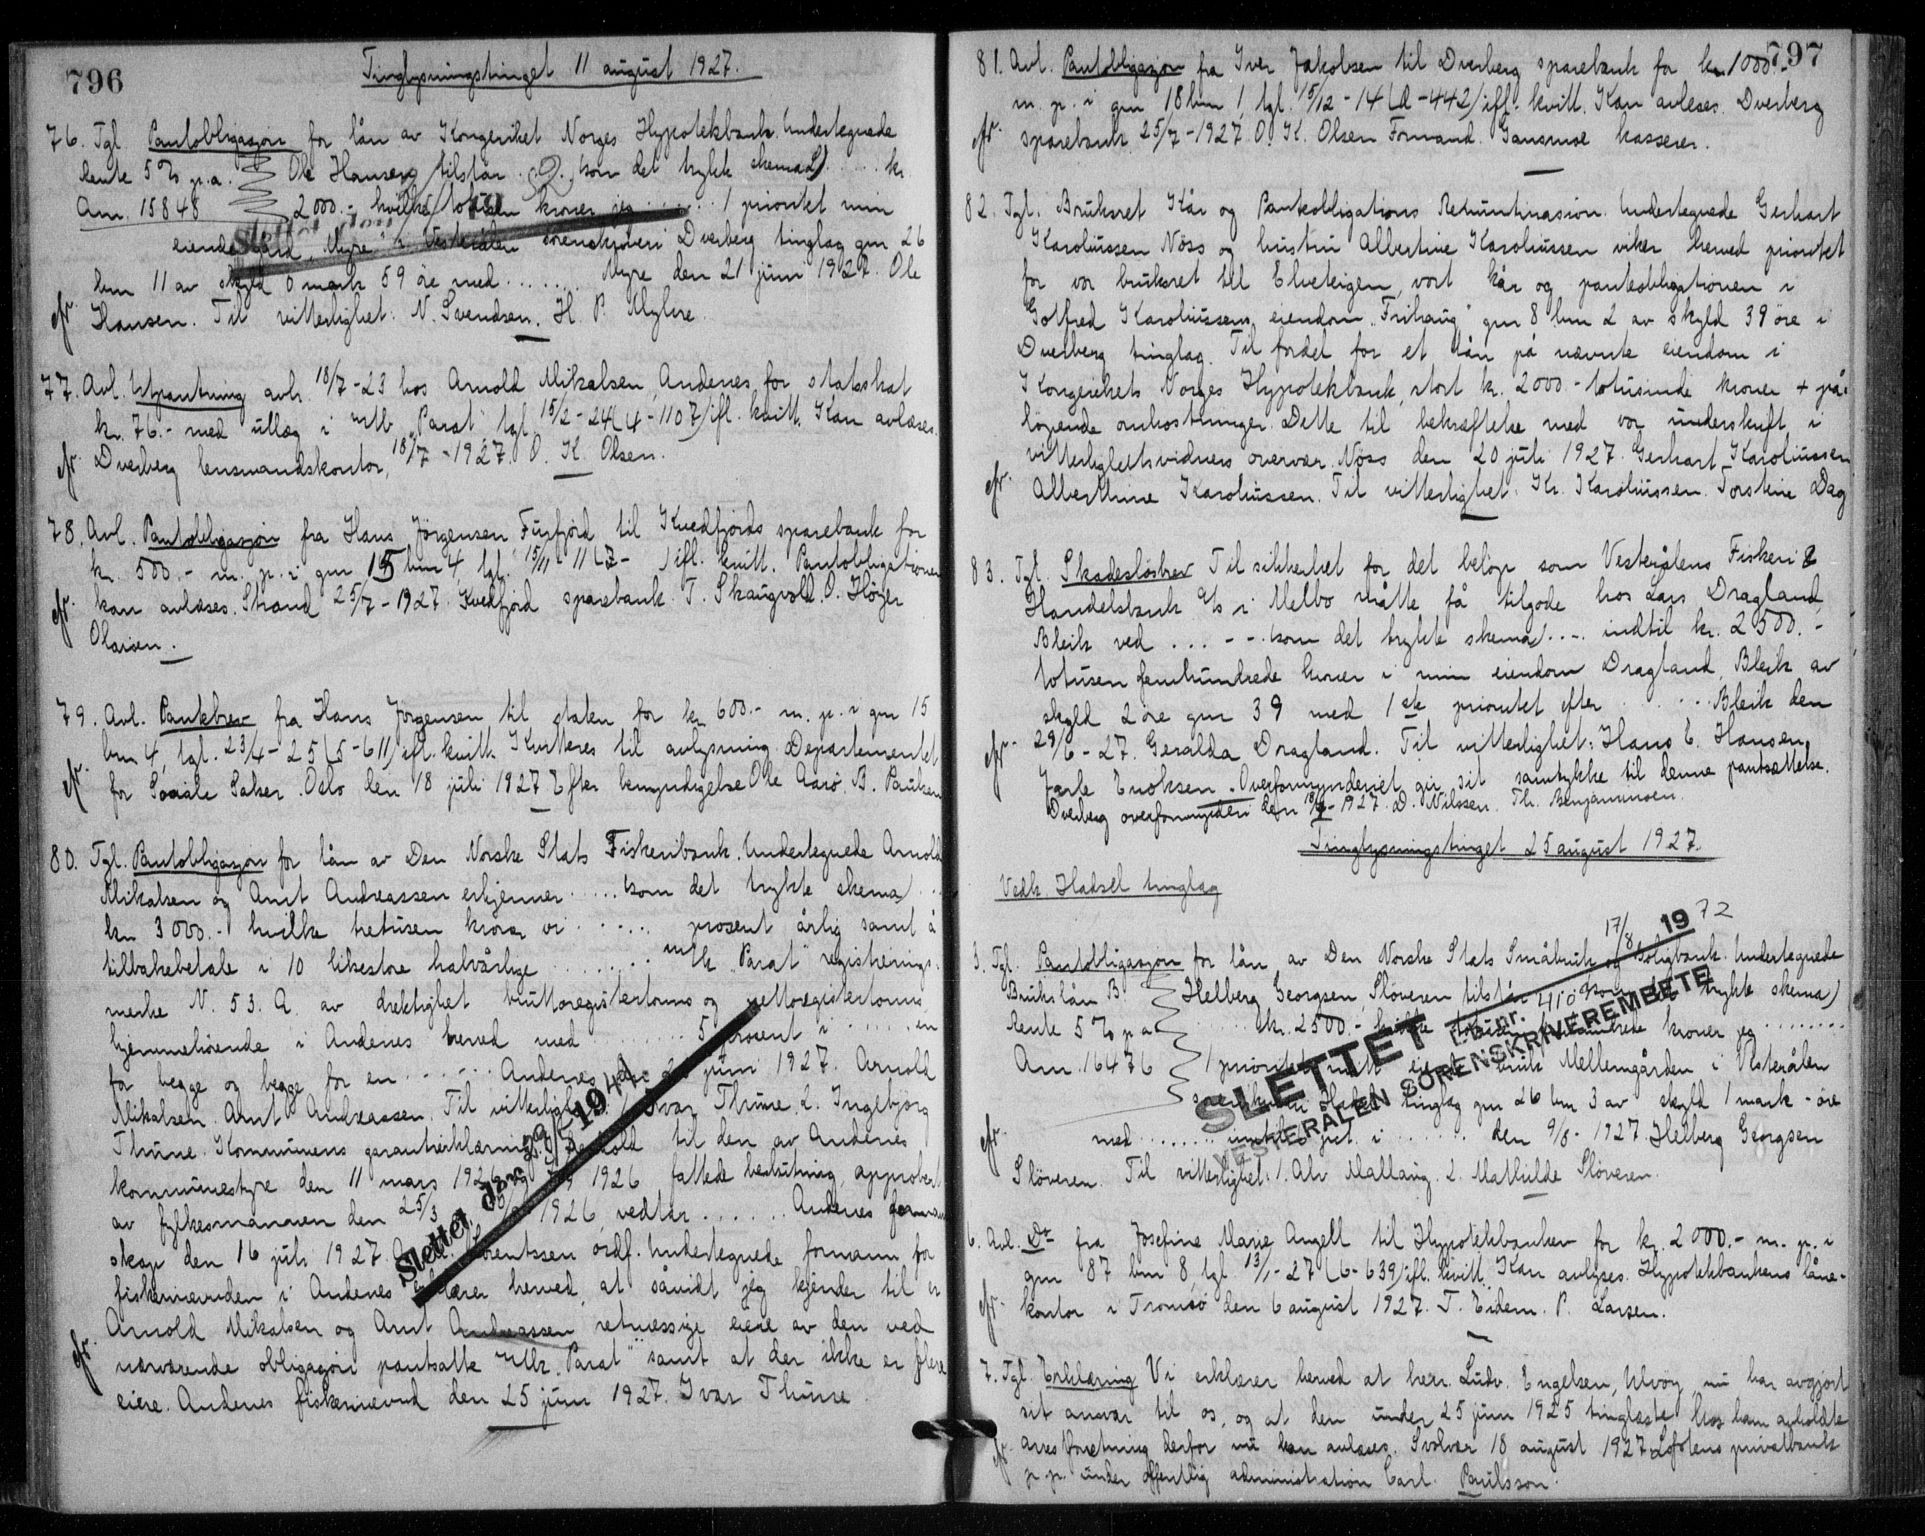 796
Tinglysningstinget 11 august 1927.
76. Tgl. Pantobligasjon for lån av Kongeriket Norges Hypotekbank. Undertegnede
Rente 5% p.a. Ole Hansen tilstår ..... (som det trykte skema) ..... kr.
Am. 15848 2000.- hvilke totusen kroner jeg ...... 1 prioritet min
eiende gård "Myre" i Vesterålen sorenskriveri Dverberg tinglag gnr 26
bnr 11 av skyld 0 mark 59 øre med ........ Myre den 21 juni 1927. Ole
Hansen. Til vitterlighet: N. Svendsen. H. P. Myhre.
Slettet den 19
77. Avl. Utpantning avh. 18/7-23 hos Arnold Mikalsen, Andenes, for statsskat
kr. 76.- med utlæg i m/k "Parat" tgl. 15/2-24 (4-1107) ifl. kvitt. Kan avlæses.
Dverberg lensmandskontor, 18/7-1927. O. K. Olsen.
78. Avl. Pantobligasjon fra Hans Jörgensen Furfjord til Kvedfjords sparebank for
kr. 500.- m. p. i gnr 15 bnr 4, tgl. 15/11-11 ( - ) ifl. kvitt. Pantobligationen
kan avlæses. Strand 25/7-1927. Kvedfjord sparebank. T. Skaugvold. O. Höyer
Olaisen.
79. Avl. Pantebrev fra Hans Jörgensen til staten for kr. 600.- m. p. i gnr 15
bnr 4, tgl. 23/4-25 (5-611) ifl. kvitt. Kvitteres til avlysning. Departementet
for Sosiale Saker. Oslo den 18 juli 1927. Efter bemyndigelse Ole Aarö. B. Paulsen
80. Tgl. Pantobligasjon for lån av Den Norske Stats Fiskeribank. Undertegnede Arnold
Mikalsen og Arnt Andreassen erkjenner ..... (som det trykte skema) ..
kr. 3000.- hvilke tretusen kroner vi ...... prosent årlig samt å
tilbakebetale i 10 likestore halvårlige ........ m/k "Parat" registrerings-
merke N. 53. A. av drektighet bruttoregistertonns og nettoregistertonns
hjemmehörende i Andenes herred med ........ 5 procent i ...... en
for begge og begge for en ...... Andenes den 25 juni 1927. Arnold
Mikalsen. Arnt Andreassen. Til vitterlighet: 1. Ivar Thune. 2. Ingebjörg
Thune. Kommunens garantierklæring: I henhold til den av Andenes
kommunestyre den 11 mars 1926 og 1926 fattede beslutning, approbert
av fylkesmannen den 25/3 1926, vedtar ...... Andenes formann
skap den 16 juli 1927. Lorentssen ordf. Undertegnede formann for
fiskernevnden i Andenes erklærer herved, at såvidt jeg kjender til er
Arnold Mikalsen og Arnt Andreassen retmessige eiere av den ved
nærværende obligasjon pantsatte m/k "Parat" samt at der ikke er flere
eiere. Andenes fiskernevnd den 25 juni 1927. Ivar Thune.
Slettet den 1944
797
81. Avl. Pantobligasjon fra Iver Jakobsen til Dverberg sparebank for kr. 1000.-
m. p. i gnr 18 bnr 1, tgl. 15/12-14 (A-442) ifl. kvitt. Kan avlæses. Dverberg
sparebank 25/7-1927. O. K. Olsen Formand. Gansmoe kasserer.
82. Tgl. Bruksret Kår og Pantobligations Renuntiasion. Undertegnede Gerhart
Karoliussen Nöss og hustru Albertine Karoliussen viker herved prioritet
for vor bruksret til Elveteigen, vort kår og panteobligationen i
Gotfred Karoliussens eiendom "Frihaug" gnr 8 bnr 2 av skyld 39 öre i
Dverberg tinglag. Til fordel for et lån på nævnte eiendom i
Kongerikets Norges Hypotekbank, stort kr. 2000.- totusinde kroner + på-
löpende omkostninger. Dette til bekræftelse med vor underskrift i
vitterlighetsvidners overvær. Nöss den 20 juli 1927. Gerhart Karoliussen
Alberthine Karoliussen. Til vitterlighet: Kr. Karoliussen. Torstein Dag
83. Tgl. Skadeslösbrev Til sikkerhet for det belöp som Vesterålens Fiskeri &
Handelsbank A/s i Melbo måtte få tilgode hos Lars Dragland,
Bleik ved ... - - (som det trykte skema) .... indtil kr. 2500.-
totusen femhundrede kroner i min eiendom Dragland, Bleik av
skyld 2 öre gnr 39 med 1ste prioritet efter ...... Bleik den
29/6-27. Geralda Dragland. Til vitterlighet: Hans E. Hansen.
Jarle Enoksen. Overformynderiet gir sit samtykke til denne pantsættelse.
Dverberg overformynderi den 18/7-1927. D. Nilssen. Th. Benjaminsen.
Tinglysningstinget 25 august 1927.
Vedk. Hadsel tinglag
3. Tgl. Pantobligasjon for lån av Den Norske Stats Småbruk og Boligbank. Undertegnede
Brukslån B. Helberg Georgsen, Slöveren tilstår (som det trykte skema)
Rente 5% p.a. kr. 2500.- hvilke totusen femhundrede kroner jeg ........
Am. 16476 1 prioritet mitt eiende bruk Mellemgården i Vesterålen
sorenskriveri Hadsel tinglag gnr 26 bnr 3 av skyld 1 mark - öre
med ........ inntatt i ....... den 9/8-1927. Helberg Georgsen
Slöveren. Til vitterlighet: 1. Alv Mallaug. 2. Mathilde Slöveren.
17/8 1972
Db.nr. 410
SLETTET
VESTERÅLEN SORENSKRIVEREMBETE
6. Avl. Do fra Josefine Marie Angell til Hypotekbanken for kr. 2000.- m. p. i
gnr 87 bnr 8 tgl. 13/1-27 (6-639) ifl. kvitt. Kan avlyses. Hypotekbankens låne-
kontor i Tromsö den 6 august 1927. T. Eidem. P. Larsen.
7. Tgl. Erklæring Vi erklærer herved at herr. Ludv. Engelsen, Ulvöy, nu har avgjort
sit ansvar til os, og at den under 25 juni 1925 tinglæste hos ham avholdte
arrestforretning derfor nu kan avlæses. Svolvær 18 august 1927. Lofotens privatbank
p.p. under offentlig administration Carl Paulsson.